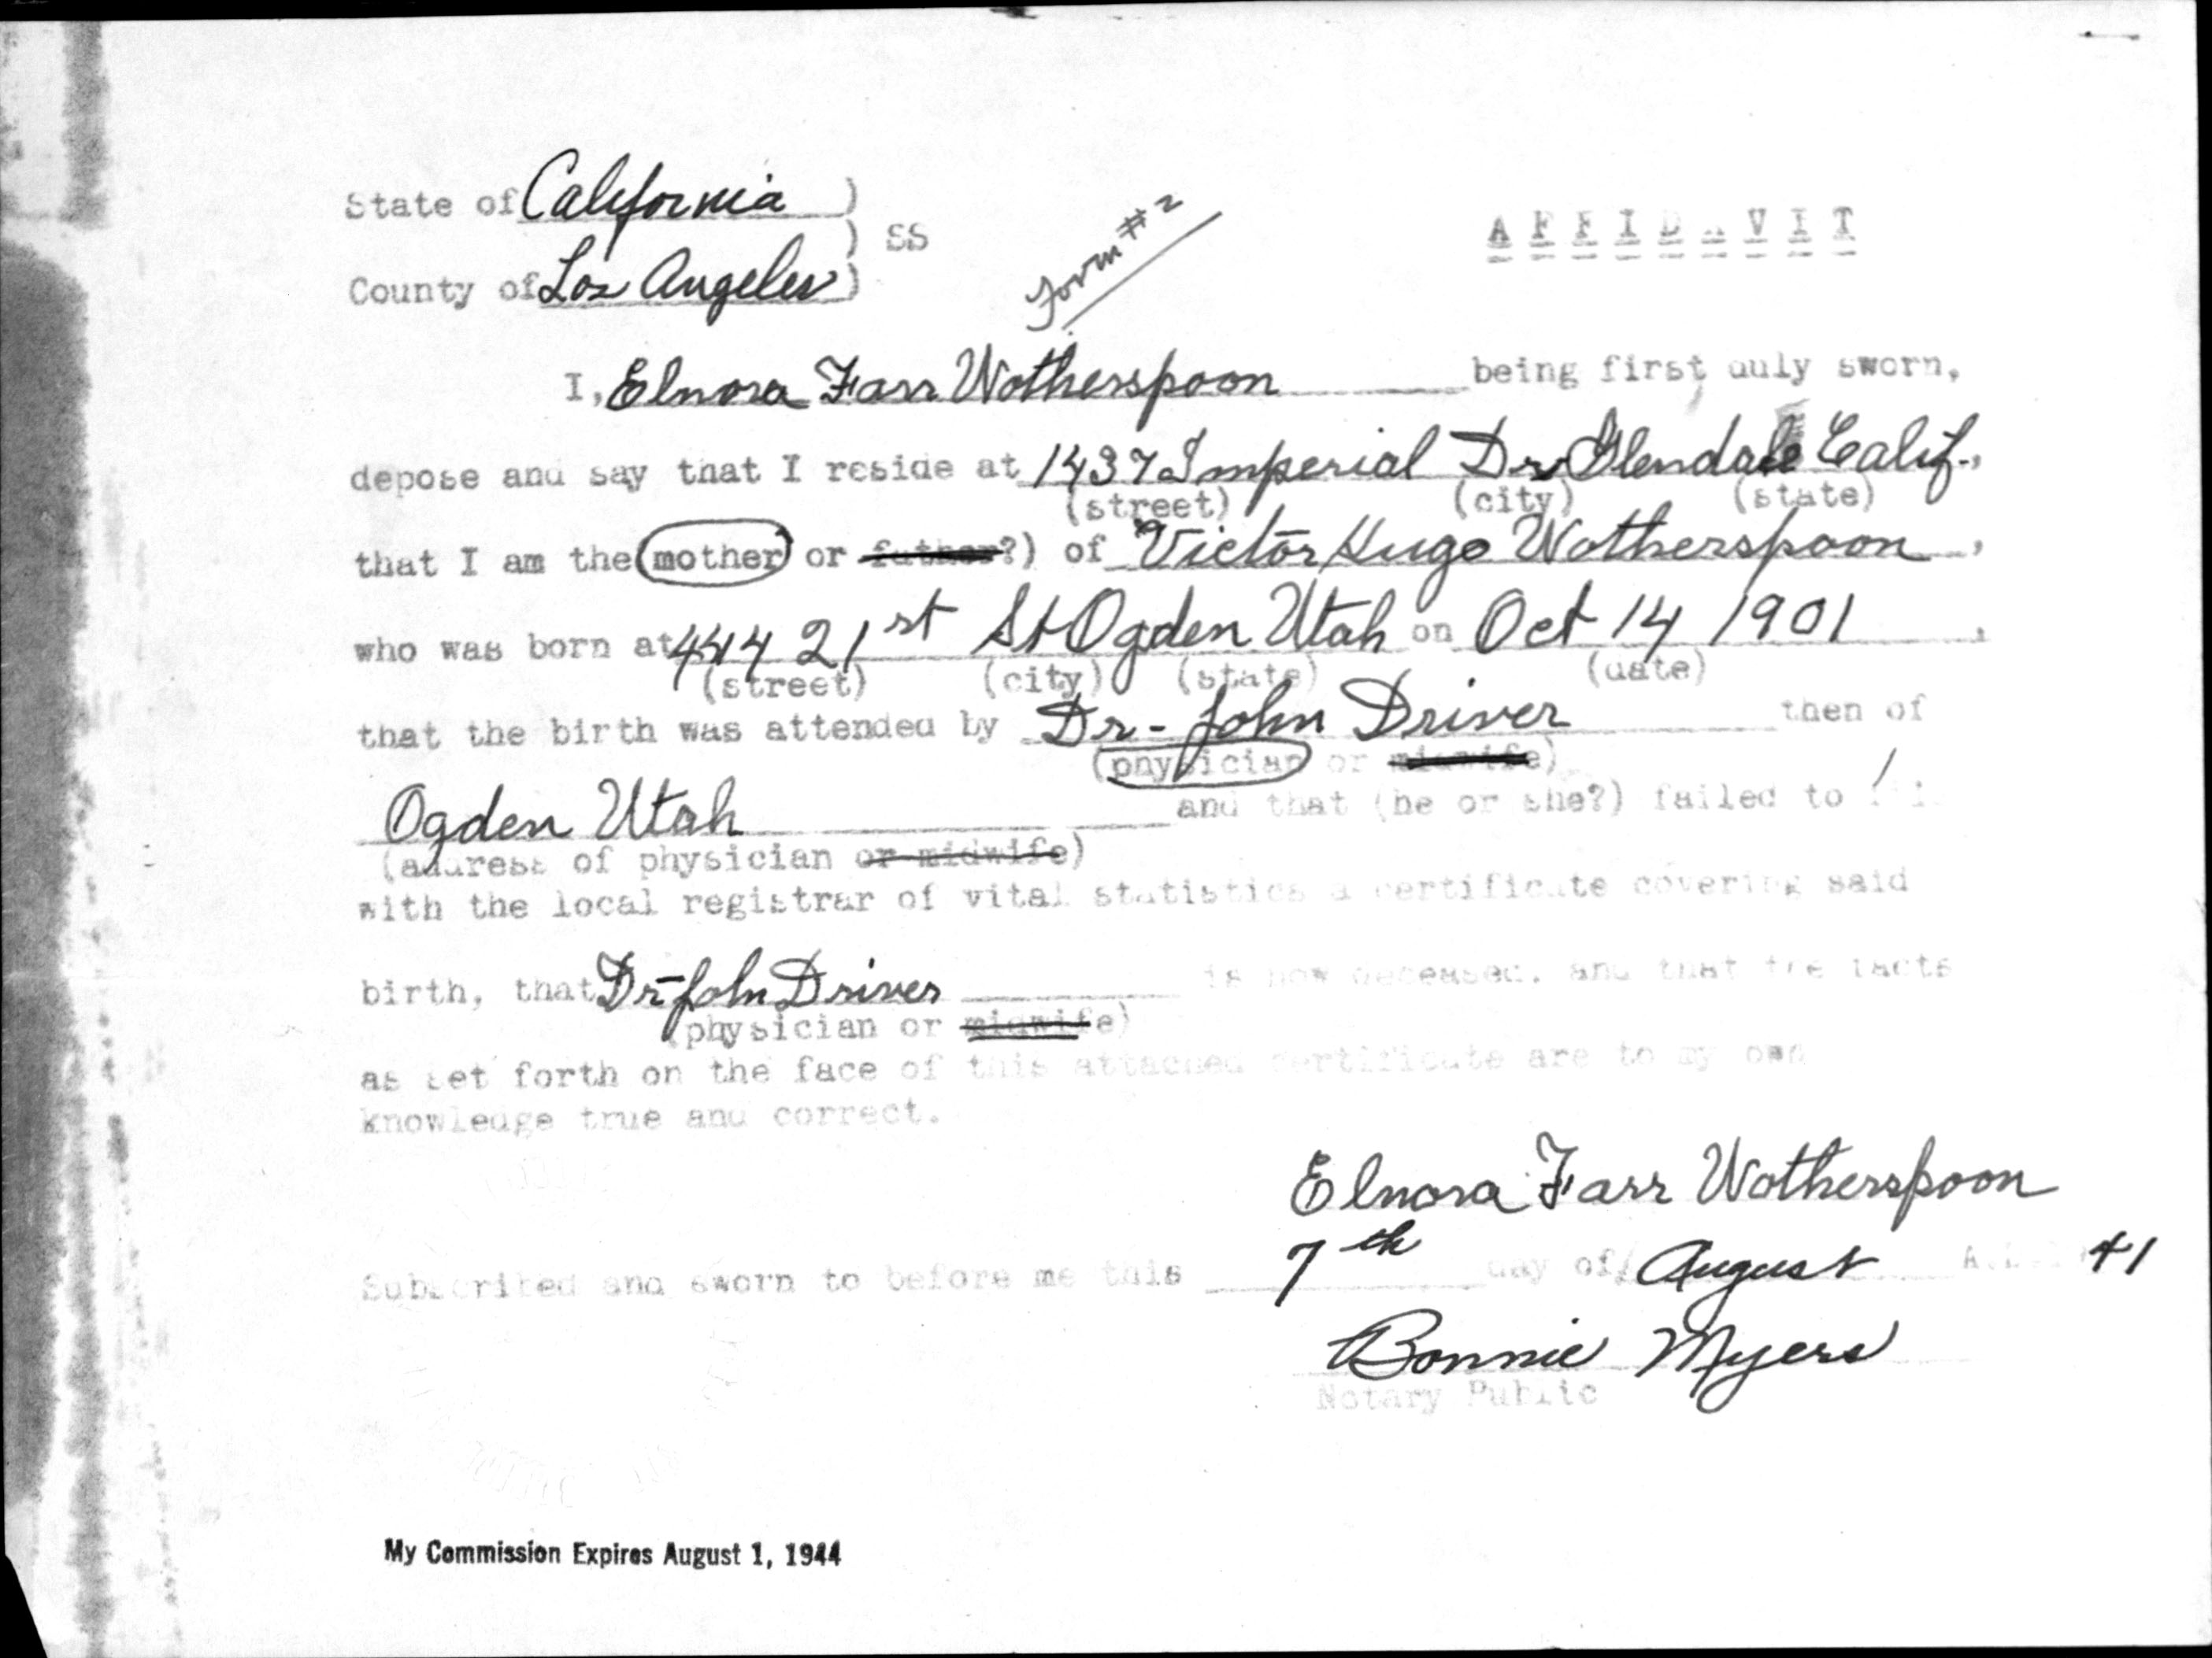 State of California )
) SS
County of Los Angeles )
Form #2
AFFIDAVIT
I, Elnora Farr Wotherspoon being first duly sworn,
depose and say that I reside at 1437 Imperial Dr Glendale Calif.,
(street) (city) (state)
that I am the (mother or father?) of Victor Hugo Wotherspoon,
who was born at 444 21st St Ogden Utah on Oct 14 1901,
(street) (city) (state) (date)
that the birth was attended by Dr- John Driver then of
(physician or midwife)
Ogden Utah and that (he or she?) failed to
(address of physician or midwife)
with the local registrar of vital statistics a certificate covering said
birth, that Dr- John Driver is now deceased, and that the facts
(physician or midwife)
as set forth on the face of this attached certificate are to my own
knowledge true and correct.
Elnora Farr Wotherspoon
Subscribed and sworn to before me this 7th day of August A.D. 41
Bonnie Myers
Notary Public
My Commission Expires August 1, 1944